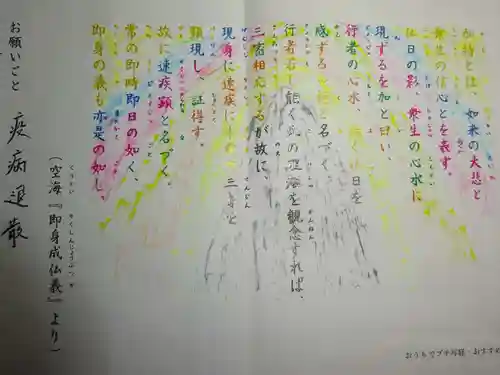 加持とは、如来の大悲と
衆生の信心とを表す。
仏日の影、衆生の心水に
現ずるを加と曰い、
行者の心水、よく仏日を
感ずるを持と名づく。
行者若し能く此の理趣を観念すれば、
三密相応するが故に、
現身に速疾に本有の三身を
顕現し、証得す。
故に速疾顕と名づく。
常の即時即日の如く、
即身の義も亦是の如し。
（空海『即身成仏義』より）
お願いごと 疫病退散
おうちでプチ写経・おすすめ